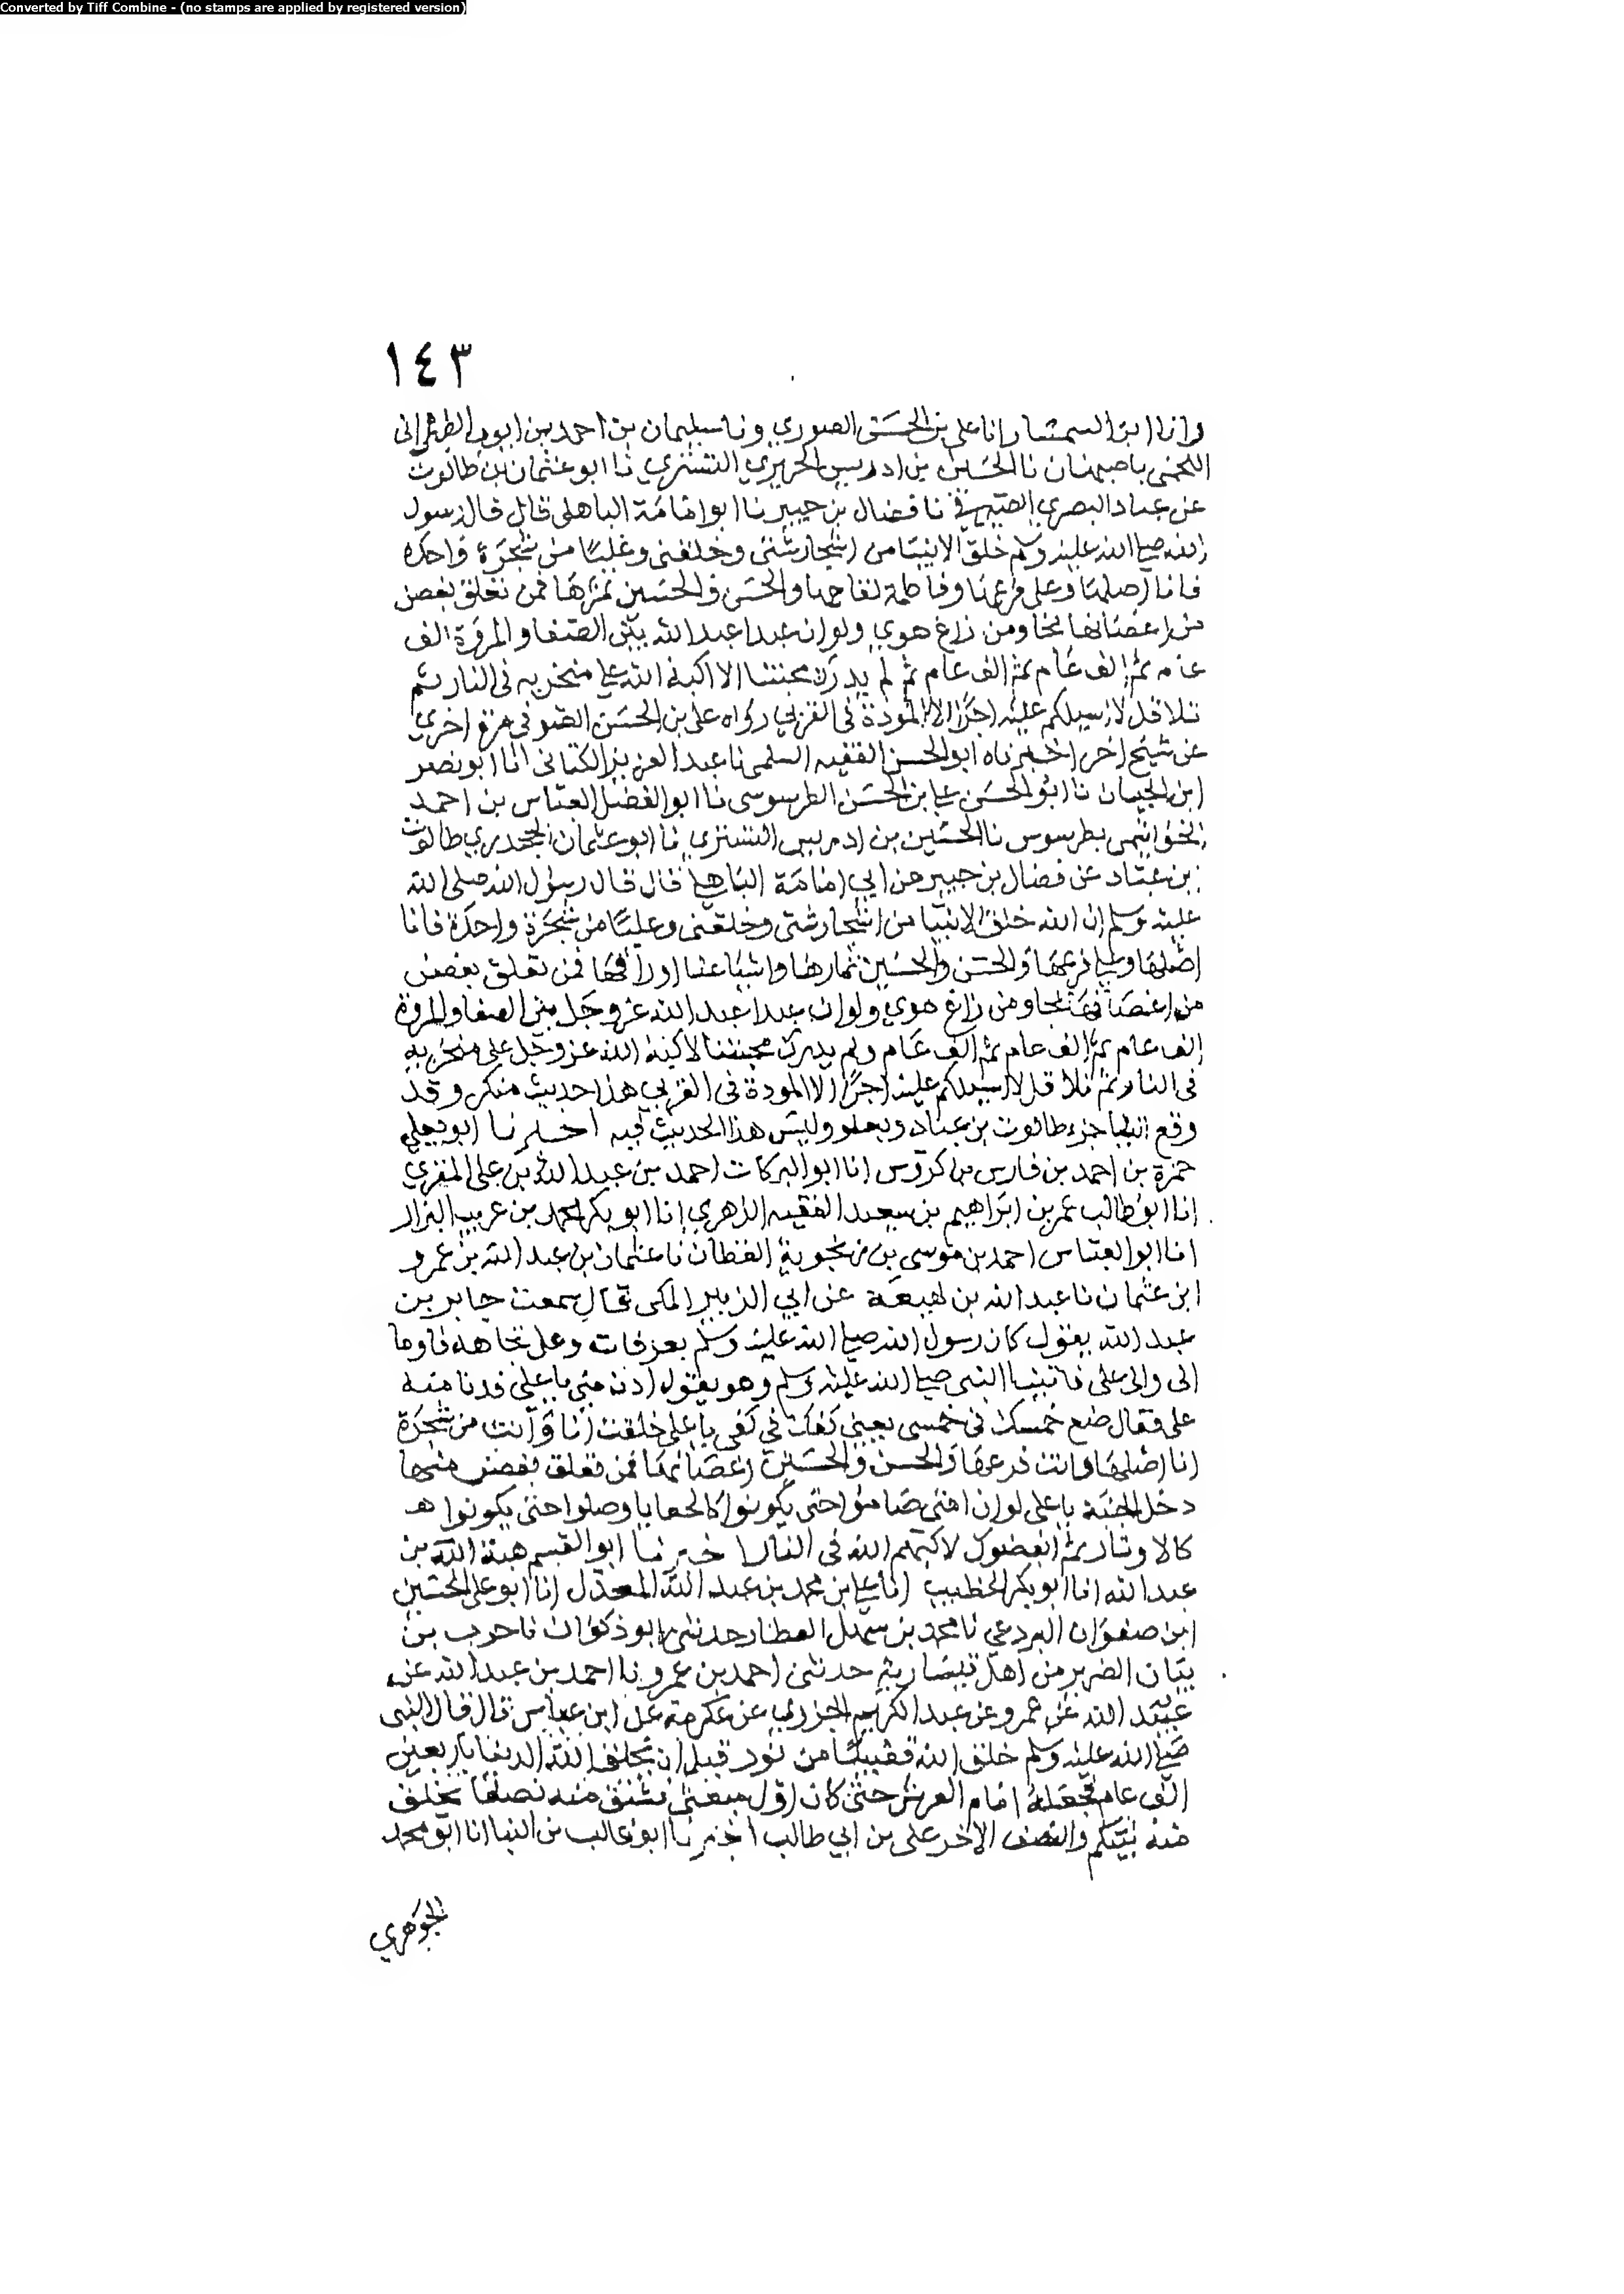 Converted by Tiff Combine - (no stamps are applied by registered version)
١٤٣
وانا ابن السمسار انا على بن الحسن الصوري ونا سليمان بن احمد بن ايوب الطبرانى
اللخمى باصبهان نا الحسين بن ادريس الحريري التستري نا ابو عثمان بن طالوت
عن عباد البصري الصيرفي نا فضال بن جبير نا ابو امامة الباهلى قال قال رسول
الله صلى الله عليه وسلم خلق الانبيا من اشجار شتى وخلقنى وعليًا من شجرة واحدة
فانا اصلها وعلى فرعها وفاطمة لقاحها والحسن والحسين ثمرها فمن تعلق بغصن
من اغصانها نجا ومن زاغ هوي ولو ان عبدا عبد الله بين الصفا والمروة الف
عام ثم الف عام ثم الف عام ثم لم يدرك محبتنا الا اكبه الله على منخريه فى النار ثم
تلا قل لا اسيلكم عليه اجرًا الا المودة فى القربي رواه على بن الحسن الصوفى مرة اخري
عن شيخ اخر اخبرناه ابو الحسن الفقيه السلمى نا عبد العزيز الكتانى انا ابو نصر
ابن الجبان نا ابو الحسن على بن الحسن الطرسوسى نا ابو الفضل العباس بن احمد
الخواتيمى بطرسوس نا الحسين بن ادريس التستري نا ابو عثمان الجحدري طالوت
بن عباد عن فضال بن جبير عن ابي امامة الباهلى قال قال رسول الله صلى الله
عليه وسلم ان الله خلق الانبيا من اشجار شتى وخلقنى وعليًا من شجرة واحدة فانا
اصلها وعلى فرعها والحسن والحسين ثمارها واشياعنا اوراقها فمن تعلق بغصن
من اغصانها نجا ومن زاغ هوي ولو ان عبدا عبد الله عز وجل بين الصفا والمروة
الف عام ثم الف عام ثم الف عام ولم يدرك محبتنا لاكبه الله عز وجل على منخريه
فى النار ثم تلا قل لا اسيلكم عليه اجرًا الا المودة فى القربي هذا حديث منكر وقد
وقع الى جزء طالوت بن عباد وبعلو وليس هذا الحديث فيه اخبرنا ابو يعلي
حمزة بن احمد بن فارس بن كروس انا ابو البركات احمد بن عبد الله بن على المقري
انا ابو طالب عمر بن ابراهيم بن سعيد الفقيه الزهري انا ابو بكر محمد بن غريب البزار
انا ابو العباس احمد بن موسى بن زنجوية القطان نا عثمان بن عبد الله بن عمرو
ابن عثمان نا عبد الله بن لهيعة عن ابي الزبير المكى قال سمعت جابر بن
عبد الله يقول كان رسول الله صلى الله عليه وسلم بعرفات وعلى تجاهه فاوما
الى والى على فاتينا النبى صلى الله عليه وسلم وهو يقول ادن مني يا على فدنا منه
على فقال ضع خمسك فى خمسى يعيني كفك في كفى يا على خلقت انا وانت من شجرة
انا اصلها وانت فرعها والحسن والحسين اغصانها فمن تعلق بغصن منها
دخل الجنة يا على لو ان امتى صاموا حتى يكونوا كالحنايا وصلوا حتى يكونوا
كالاوتار ثم ابغضوك لاكبهم الله فى النار اخبرنا ابو القسم هبة الله بن
عبد الله انا ابو بكر الخطيب انا على بن محمد بن عبد الله المعدل انا ابو على الحسين
ابن صفوان البردعي نا محمد بن سهل العطار حدثنى ابو ذكوان نا حرب بن
بيان الضرير من اهل قيسارية حدثنى احمد بن عمرو نا احمد بن عبد الله عن
عبيد الله عن عمرو عن عبد الكريم الجزري عن عكرمة عن ابن عباس قال قال النبى
صلى الله عليه وسلم خلق الله قضيبًا من نور قبل ان يخلق الله الدنيا باربعين
الف عام فجعله امام العرش حتى كان اول مبعثى فشق منه نصفا فخلق
منه نبيكم والنصف الاخر على بن ابي طالب اخبرنا ابو غالب بن البنا انا ابو محمد
الجوهري